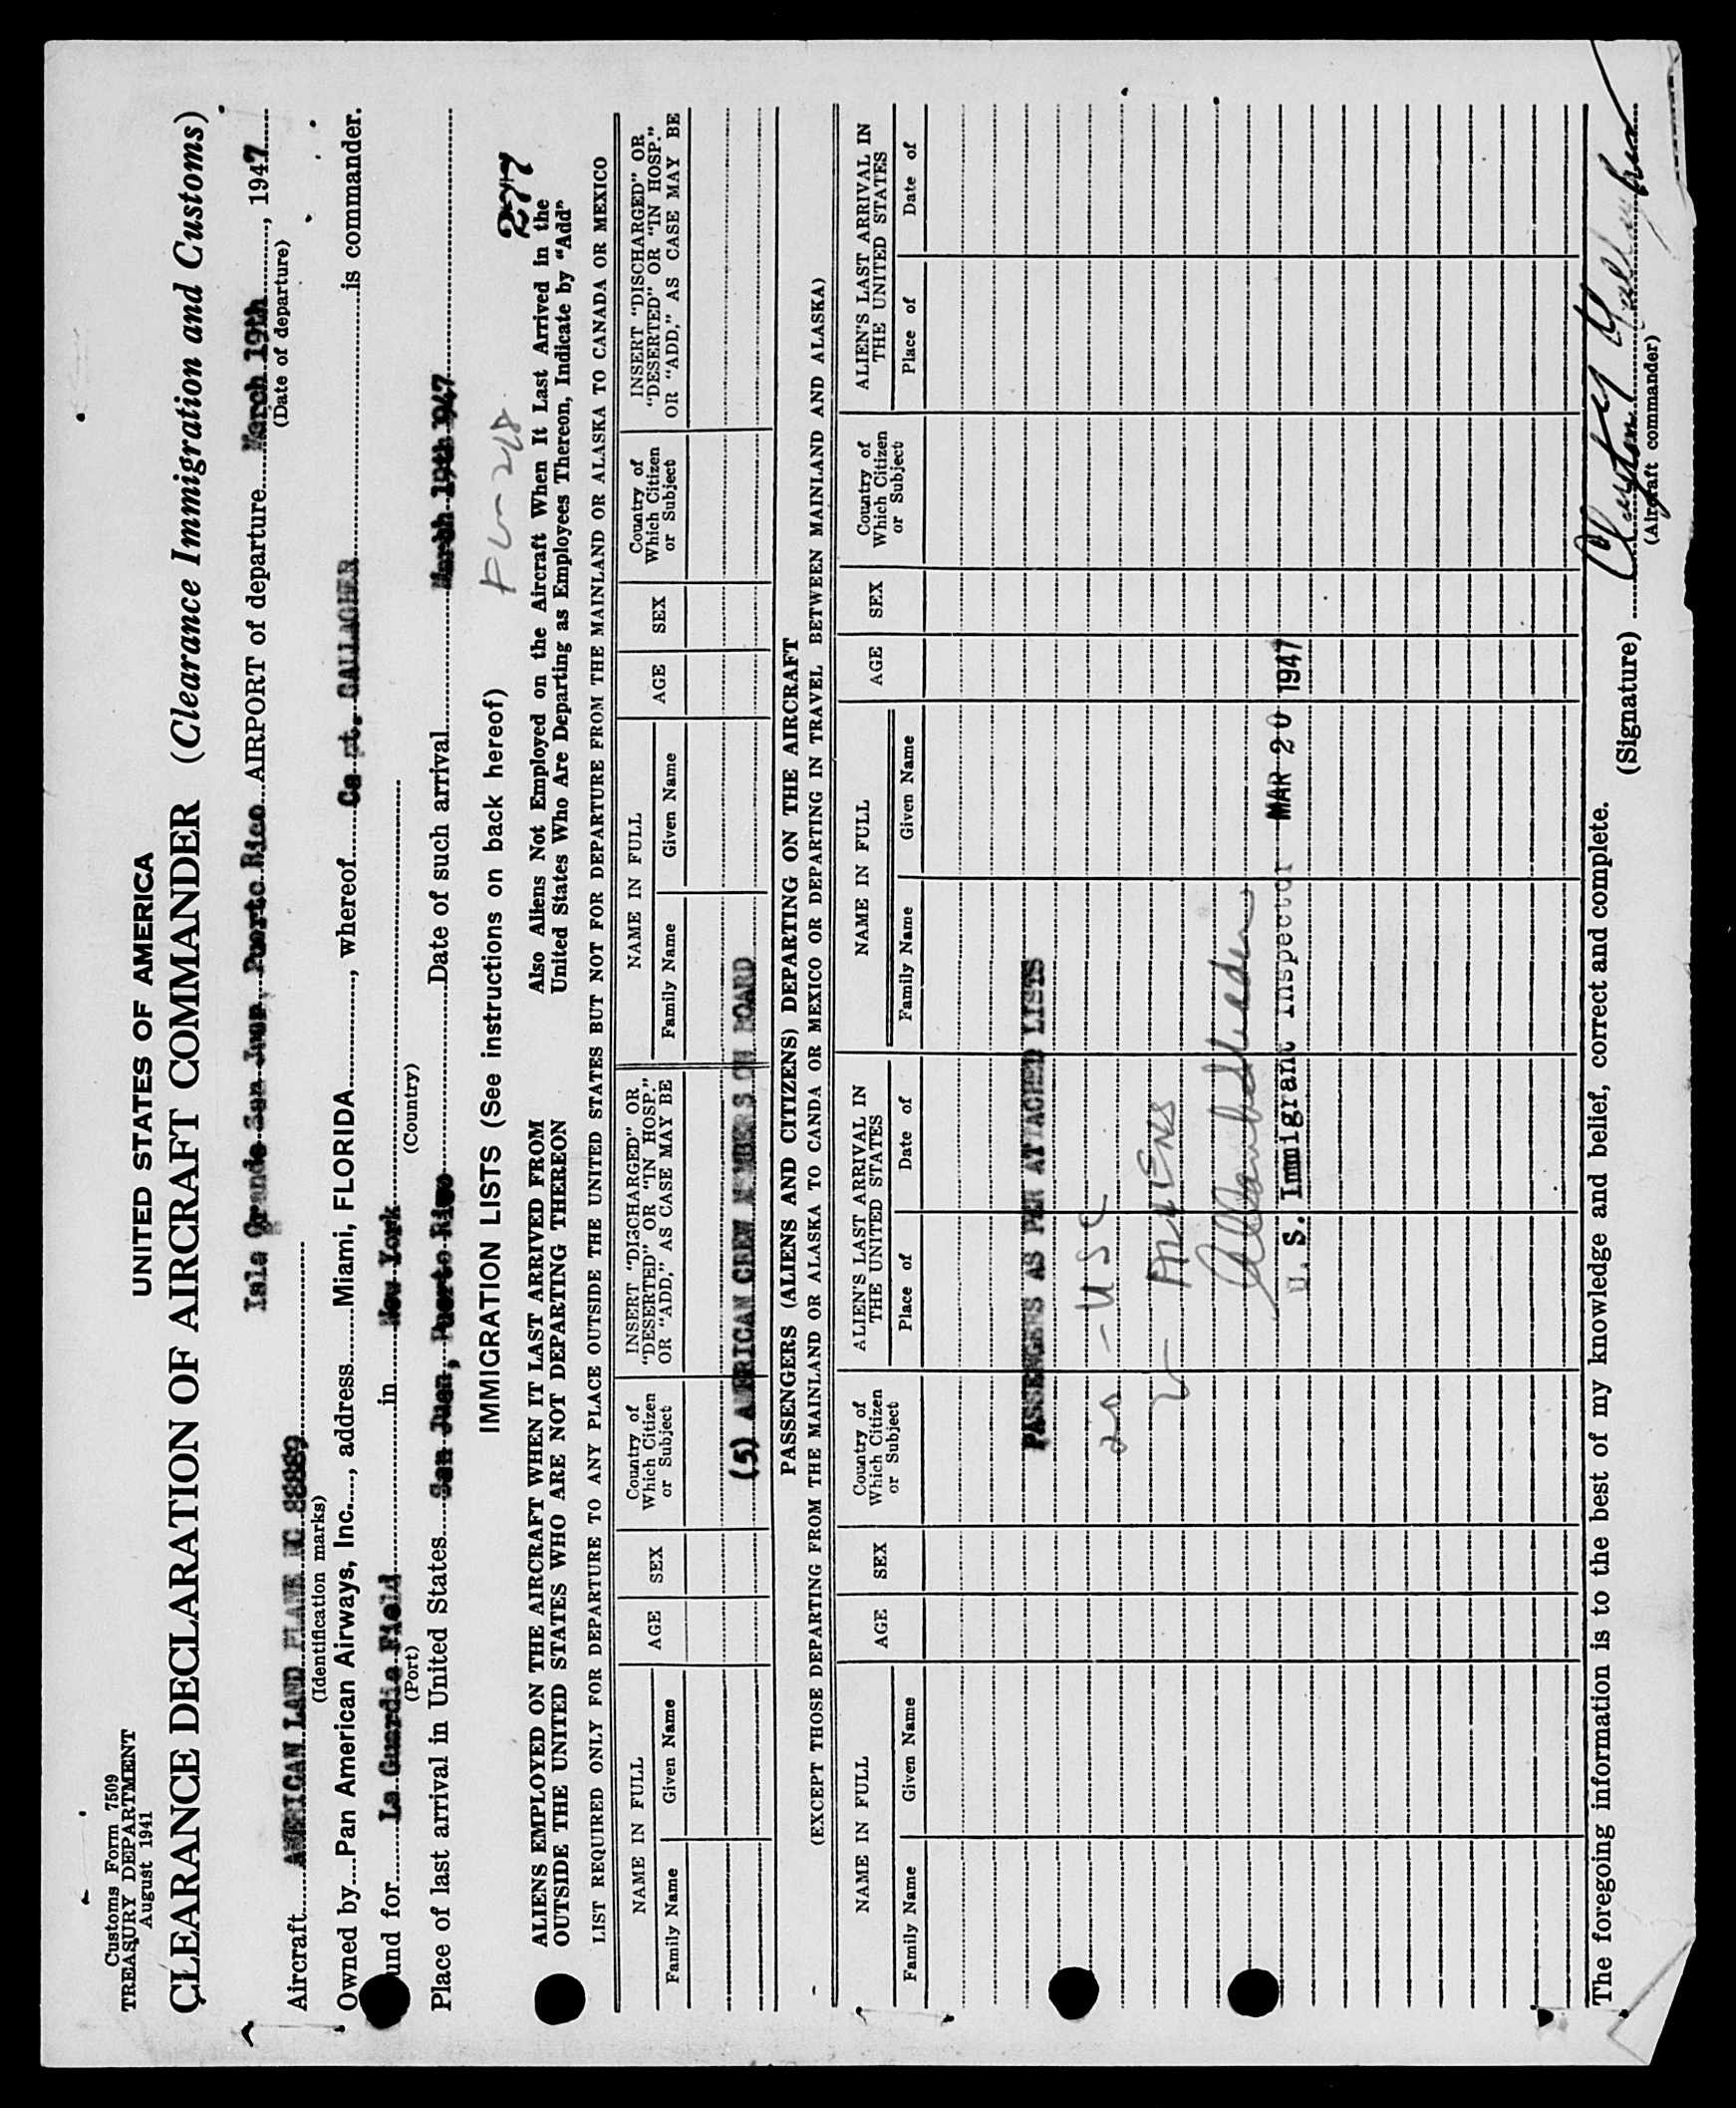 Customs Form 7509
TREASURY DEPARTMENT
August 1941
UNITED STATES OF AMERICA
CLEARANCE DECLARATION OF AIRCRAFT COMMANDER (Clearance Immigration and Customs)
Isla Grande San Juan, Puerto Rico AIRPORT of departure March 19th, 1947
(Date of departure)
Aircraft AMERICAN LAND PLANE NC 88889
(Identification marks)
Owned by Pan American Airways, Inc., address Miami, FLORIDA, whereof Ca pt. GALLAGHER is commander.
und for La Guardia Field in New York
(Port) (Country)
Place of last arrival in United States San Juan, Puerto Rico Date of such arrival March 19th 1947
IMMIGRATION LISTS (See instructions on back hereof)
277
ALIENS EMPLOYED ON THE AIRCRAFT WHEN IT LAST ARRIVED FROM
OUTSIDE THE UNITED STATES WHO ARE NOT DEPARTING THEREON
Also Aliens Not Employed on the Aircraft When It Last Arrived in the
United States Who Are Departing as Employees Thereon, Indicate by "Add"
LIST REQUIRED ONLY FOR DEPARTURE TO ANY PLACE OUTSIDE THE UNITED STATES BUT NOT FOR DEPARTURE FROM THE MAINLAND OR ALASKA TO CANADA OR MEXICO
NAME IN FULL
Family Name Given Name
AGE
SEX
Country of
Which Citizen
or Subject
INSERT "DISCHARGED" OR
"DESERTED" OR "IN HOSP."
OR "ADD," AS CASE MAY BE
NAME IN FULL
Family Name Given Name
AGE
SEX
Country of
Which Citizen
or Subject
INSERT "DISCHARGED" OR
"DESERTED" OR "IN HOSP."
OR "ADD," AS CASE MAY BE
(5) AMERICAN CREW MEMBERS ON BOARD
PASSENGERS (ALIENS AND CITIZENS) DEPARTING ON THE AIRCRAFT
(EXCEPT THOSE DEPARTING FROM THE MAINLAND OR ALASKA TO CANDA OR MEXICO OR DEPARTING IN TRAVEL BETWEEN MAINLAND AND ALASKA)
NAME IN FULL
Family Name Given Name
AGE
SEX
Country of
Which Citizen
or Subject
ALIEN'S LAST ARRIVAL IN
THE UNITED STATES
Place of Date of
NAME IN FULL
Family Name Given Name
AGE
SEX
Country of
Which Citizen
or Subject
ALIEN'S LAST ARRIVAL IN
THE UNITED STATES
Place of Date of
PASSENGERS AS PER ATTACHED LISTS
20 - USC
ALIENS
U. S. Immigrant Inspector MAR 20 1947
The foregoing information is to the best of my knowledge and belief, correct and complete.
(Signature)
(Aircraft commander)